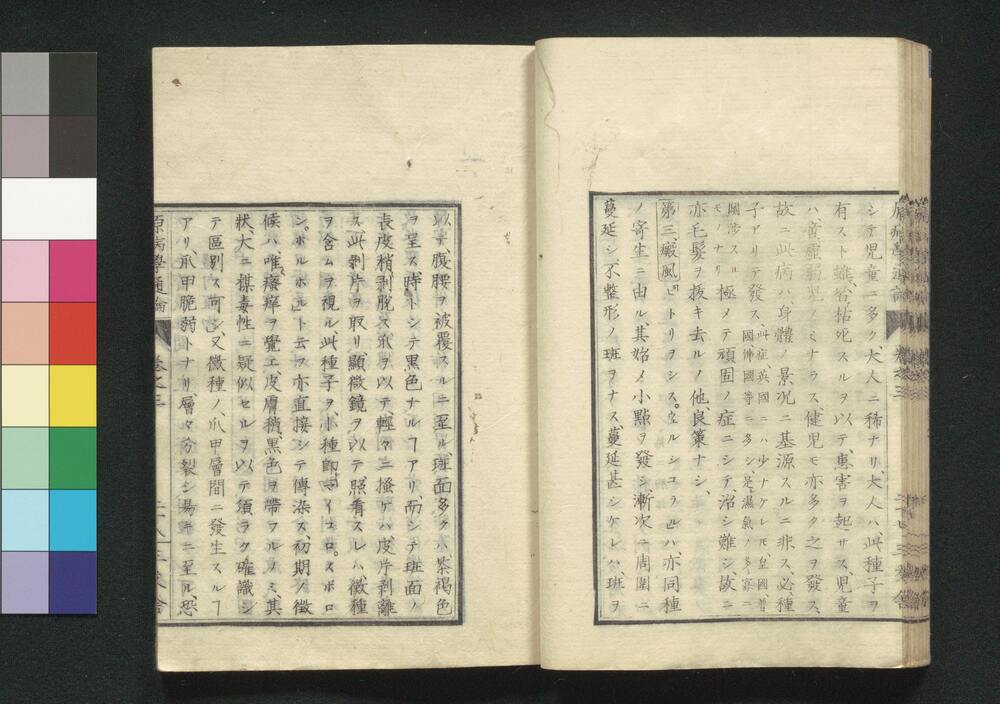 シテ児童ニ多ク、大人ニ稀ナリ、大人ハ、此種子ヲ
有スト雖、皆枯死スルヲ以テ、患害ヲ起サス、児童
ハ、薫虚弱児ノミナラス、健児モ亦多ク之ヲ發ス、
故ニ此病ハ、身體ノ景况ニ基源スルニ非ス、必種
子アリテ發ス、此症英國ニハ少ナケレ𪜈、皇國、普
國佛國等ニ多シ、是濕氣ノ多寡ニ
關渉スル
モノナリ極メテ頑固ノ症ニシテ治シ難シ故ニ
亦毛髮ヲ抜キ去ルノ他、良策ナシ、
第三、癜風「ピトリヲシス。ウェルシコラ」ハ、亦同種
ノ寄生ニ由ル、其始メ小點ヲ發シ、漸次ニ周圍ニ
蔓延シ、不整形ノ斑ヲナス、蔓延甚シケレハ、斑ヲ
以テ、腹腰ヲ被覆スルニ至ル、斑面多クハ、茶褐色
ヲ呈ス、時トシテ黒色ナルヿアリ、而シテ斑面ノ
表皮稍剥脱ス、爪ヲ以テ、輕々ニ搔ケハ、皮片剥離
ス、此剥片ヲ取リ、顯微鏡ヲ以テ、照看スレハ、微種
ヲ含ムヲ視ル、此種子ヲ、小種即「マイコロ。スポロ
シ。ホルホル」ト云フ、亦直接シテ傳染ス、初期ノ徴
候ハ、唯瘙痒ヲ覺エ、皮膚微黒色ヲ帶フルノミ、其
狀、大ニ楳毒性ニ疑似セルヲ以テ、須ラク確識シ
テ區別ス可シ、又微種ノ、爪甲層間ニ發生スルヿ
アリ、爪甲脆弱トナリ、層々分裂シ易キニ至ル、恐
原病學通論
巻之三